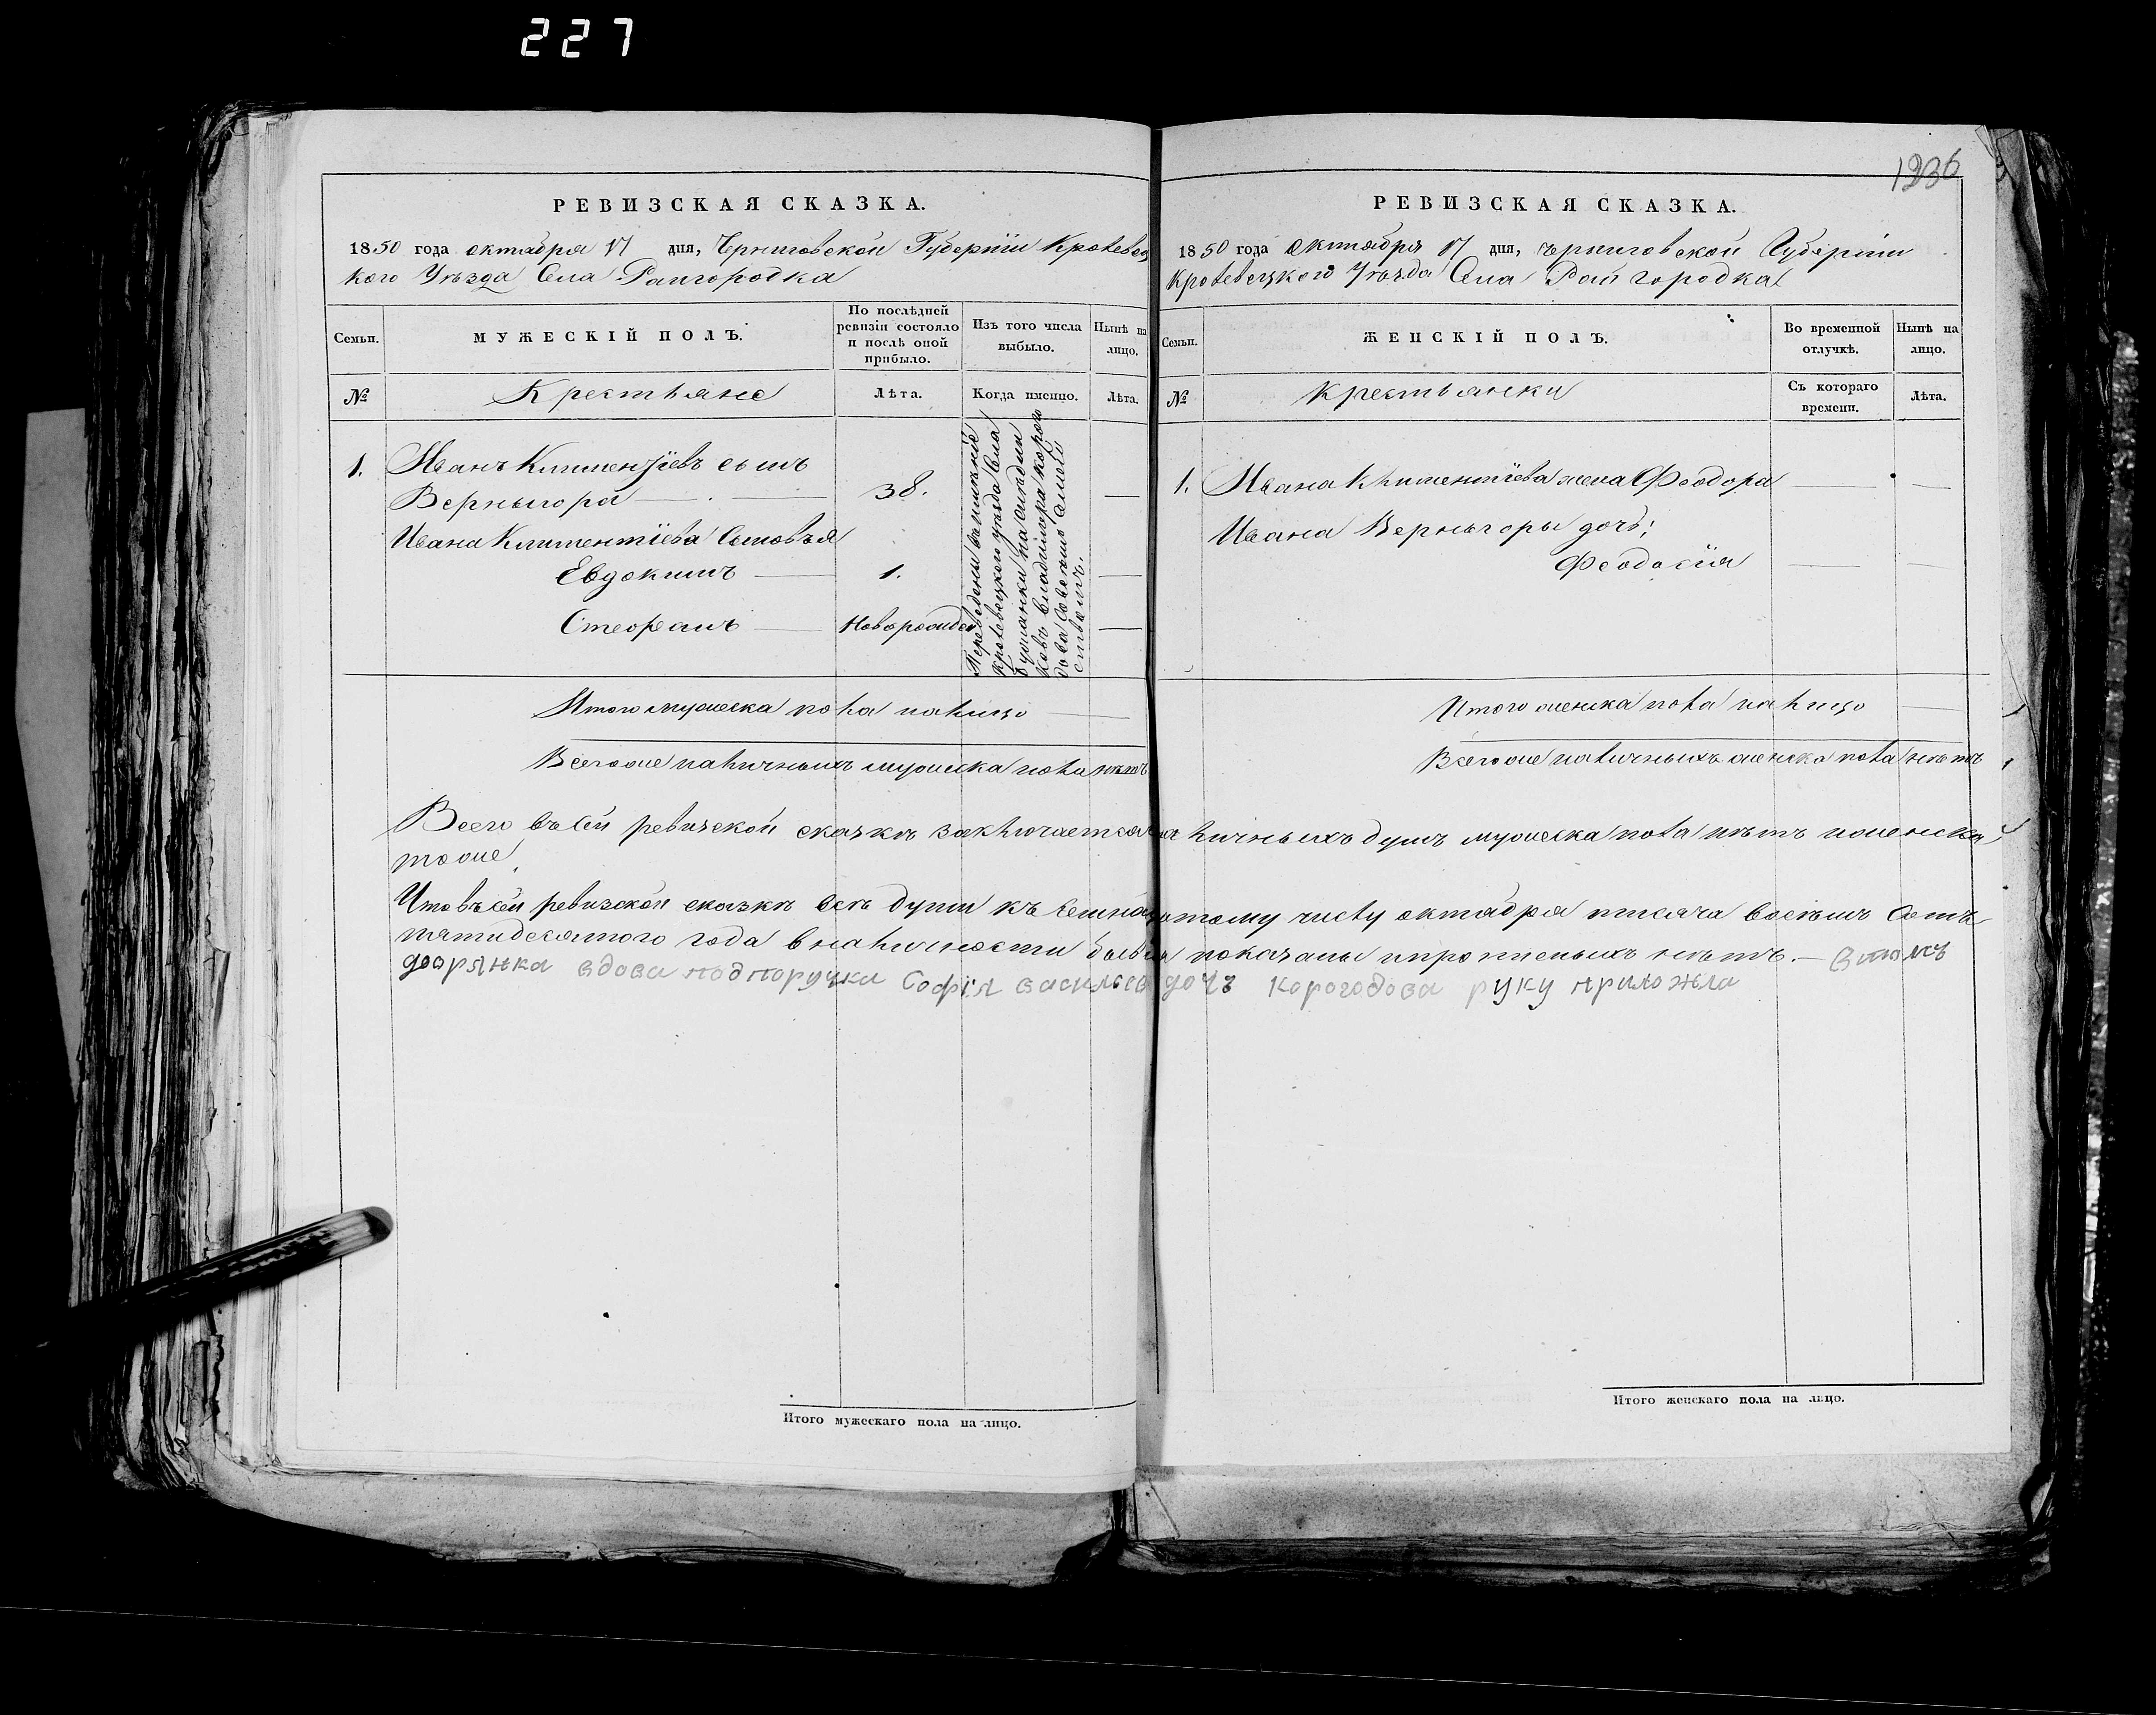 227
1236
РЕВИЗСКАЯ СКАЗКА.
1850 года октября 17 дня, Черниговской Губернiи Кролевец
кого Уѣзда Села Райгородка
Семьи.
МУЖЕСКІЙ ПОЛЪ.
По послѣдней
ревизіи состояло
и послѣ оной
прибыло.
Изъ того числа
выбыло.
Нынѣ на
лицо.
№
Крестьяне
Лѣта.
Когда именно.
Лѣта.
1. Иванъ Климентіевъ сынъ
Верныгора — . — 38. —
Ивана Климентіева Сыновья
Евдокимъ — 1. —
Стефанъ — Новорожден —
Переведены
кролевецкого уѣзда Села
Итого мужеска пола налицо —
Всегоже наличныхъ мужеска пола нѣтъ
РЕВИЗСКАЯ СКАЗКА.
1850 года Октября 17 дня, Черниговской Губерніи
Кролевецкого Уѣзда Села Райгородка
Семьи.
ЖЕНСКІЙ ПОЛЪ.
Во временной
отлучкѣ.
Нынѣ на
лицо.
№
Крестьянки
Съ котораго
времени.
Лѣта.
1. Ивана Климентіева жена Феодора — —
Ивана Верныгоры дочь;
Феодосія — —
Итого женска пола налицо —
Всегоже наличныхъ женска пола нѣтъ
Всего въсей ревизской сказкѣ заключается наличныхъ душъ мужеска пола нѣтъ иженска
тоже
Что въсей ревизской сказкѣ всѣ души къ семнацатому числу октября тисяча восемь Сотъ
пятидесятого года в наличности бывшія показаны ипрописныхъ нѣтъ. — Втомъ
дворянка вдова подпоручка Софія васильев дочь Корогодова руку приложила
Итого мужескаго пола на лицо.
Итого женскаго пола на лицо.